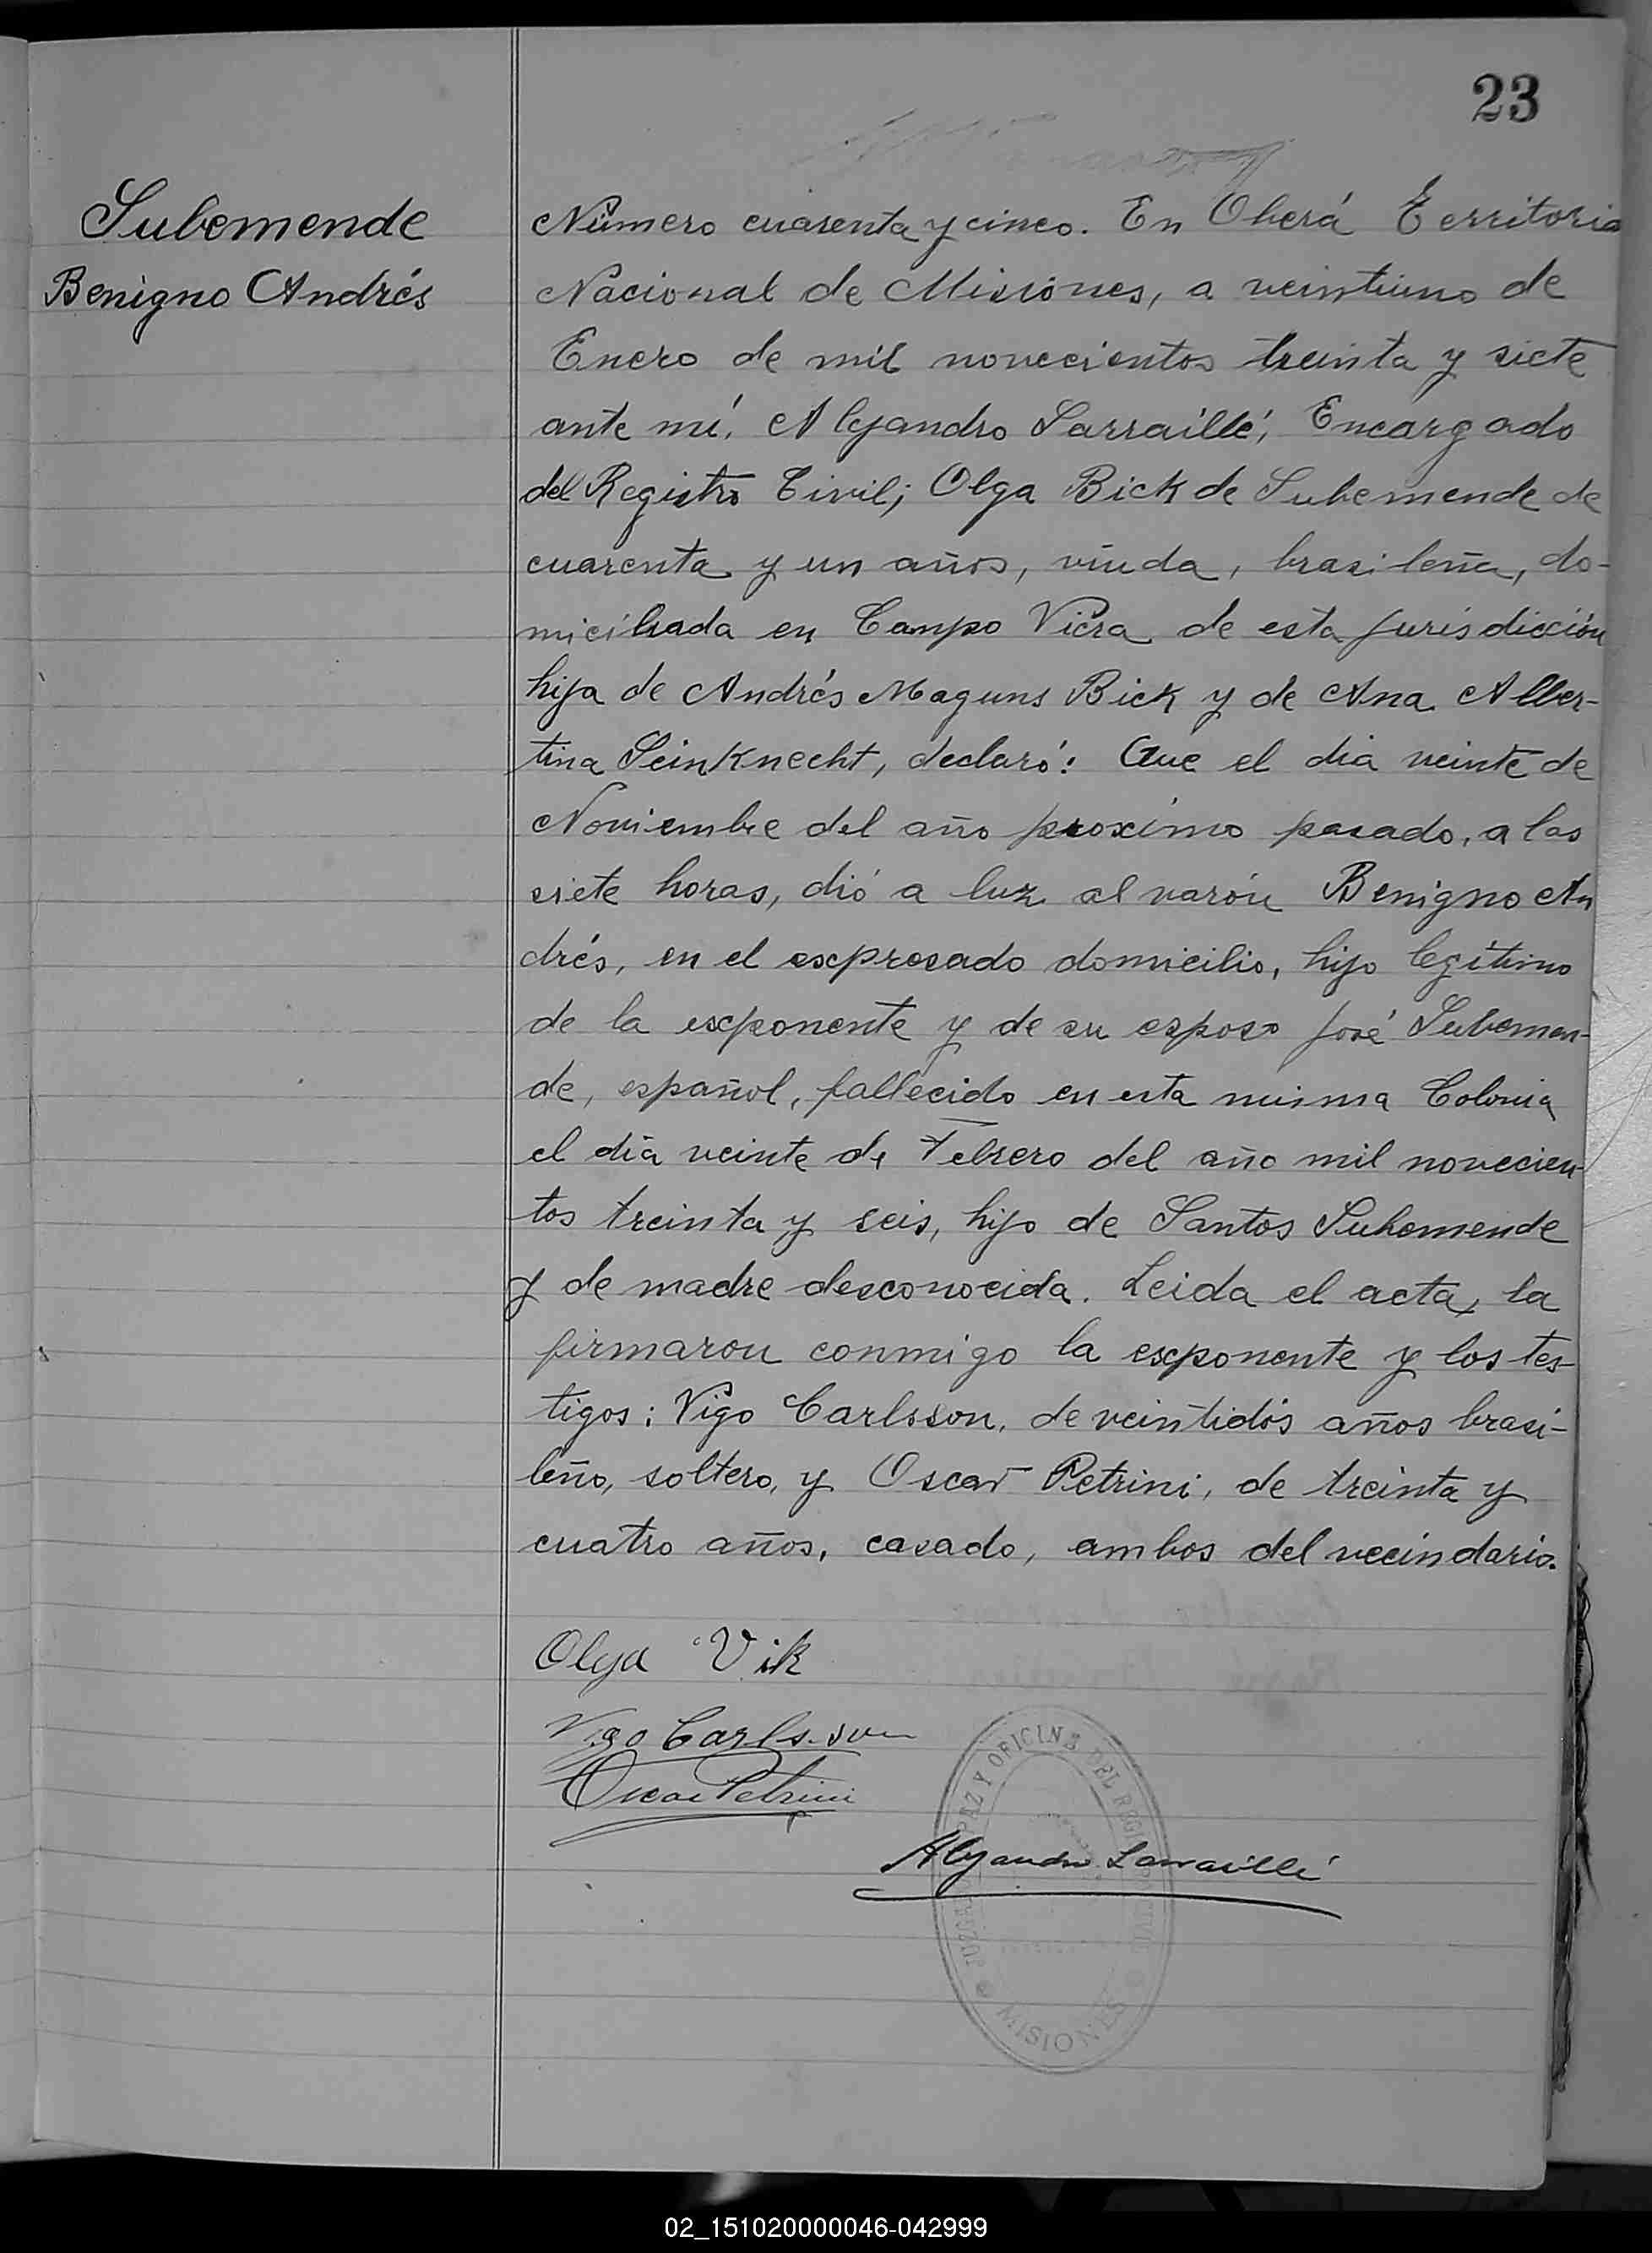 23
Subemende
Benigno Andrés
Número cuarenta y cinco. En Oberá Territorio
Nacional de Misiones, a veintiuno de
Enero de mil novecientos treinta y siete
ante mí, Alejandro Larraillé, Encargado
del Registro Civil; Olga Bick de Subemende de
cuarenta y un años, viuda, brasileña, do-
miciliada en Campo Viera de esta jurisdicción
hija de Andrés Maguns Bick y de Ana Alber-
tina Leinknecht, declaró: Que el día veinte de
Noviembre del año proximo pasado, a las
siete horas, dió a luz al varón Benigno An
drés, en el expresado domicilio, hijo legítimo
de la exponente y de su esposo José Subemen-
de, español, fallecido en esta misma Colonia
el día veinte de Febrero del año mil novecien-
tos treinta y seis, hijo de Santos Subemende
y de madre desconocida. Leida el acta, la
firmaron conmigo la exponente y los tes-
tigos: Vigo Carlsson, de veintidós años brasi-
leño, soltero, y Oscar Petrini, de treinta y
cuatro años, casado, ambos del vecindario.
Olga Vik
Vigo Carlsson
Oscar Petrini
JUZGADO PAZ Y OFICINA DEL REGI CIVIL
Alejandro Larraillé
MISIONES
02_151020000046-042999